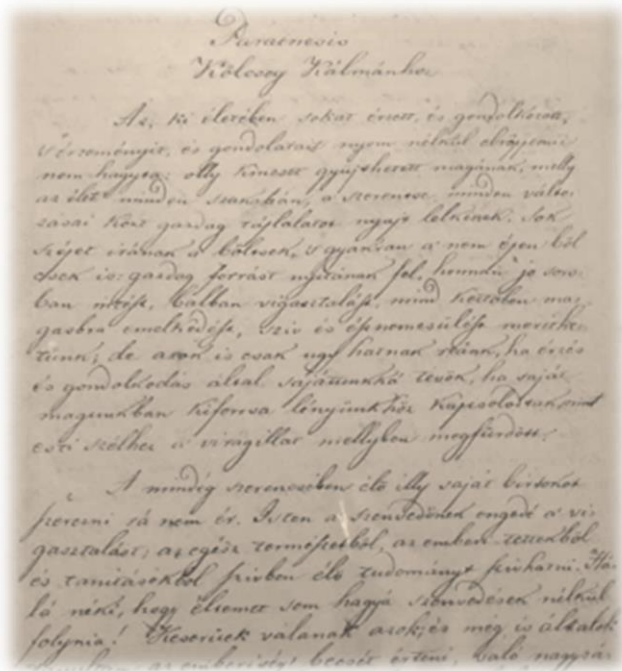 Paraenesis
Kölcsey Kálmánhoz
Az, ki életében sokat érzett, és gondolkozott,
s érzeményit, és gondolatait nyom nélkül elröppenni
nem hagyta: olly kincset gyüjthetett magának, melly
az élet minden szakában, a szerencse minden válto-
zásai közt gazdag táplálatot nyujt lelkének. Sok
szépet irának a bölcsek, s gyakran a nem épen böl
csek is: gazdag forrást nyitának fel, honnan jó sors-
ban intést, balban vigasztalást, mind kettőben ma-
gasbra emelkedést, sziv és ész nemesülést meríthe-
tünk; de azok is csak ugy hatnak reánk, ha érzés
és gondolkodás által sajátunkká tevők, ha saját
magunkban kiforrva lényünkhöz kapcsolódtak, mint
esti szélhez a virágillat mellyben megfürdött.
A mindig szerencsében élő illy saját birtokot
szerezni rá nem ér. Isten a szenvedőnek engedé a vi-
gasztalást; az egész természetből, az emberi tettekből
és tanításokból szivben élő tudományt szivhatni. Há-
la néki, hogy éltemet sem hagyá szenvedések nélkül
folynia! Keserüek valának azok; és még is általok
az emberiség becsét érteni, való nagysá-